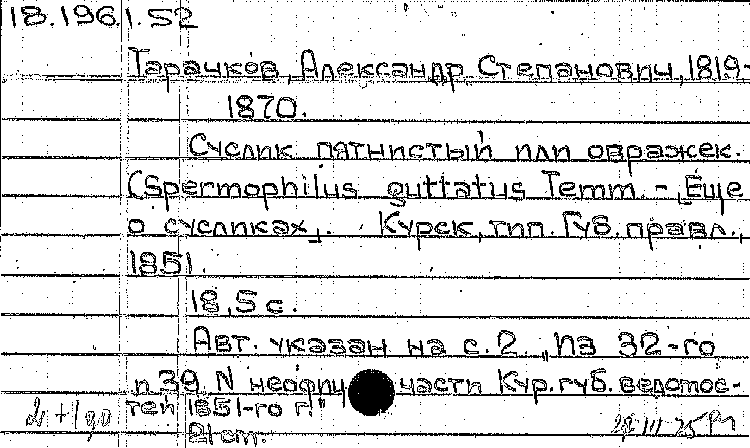 18.196.1.52
Тарачков, Александр Степанович, 1819-
1870.
Суслик пятнистый или овражек.
(Spermophilus guttatus Temm. - „Еще
о сусликах„. Курск, тип. Губ. правл.,
1851.
18,5 с.
Авт. указан на с.2. „Из 32-го
и 39. N неофиц части Кур. губ. ведомос-
тей 1851-го г."
21 cm.